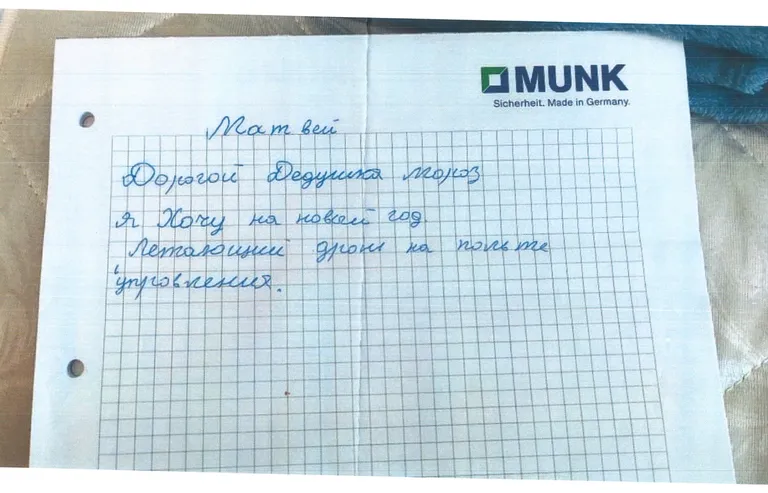 MUNK
Sicherheit. Made in Germany.
Матвей
Дорогой Дедушка мороз
я Хочу на новый год
Летающий дрон на польте
упровления.